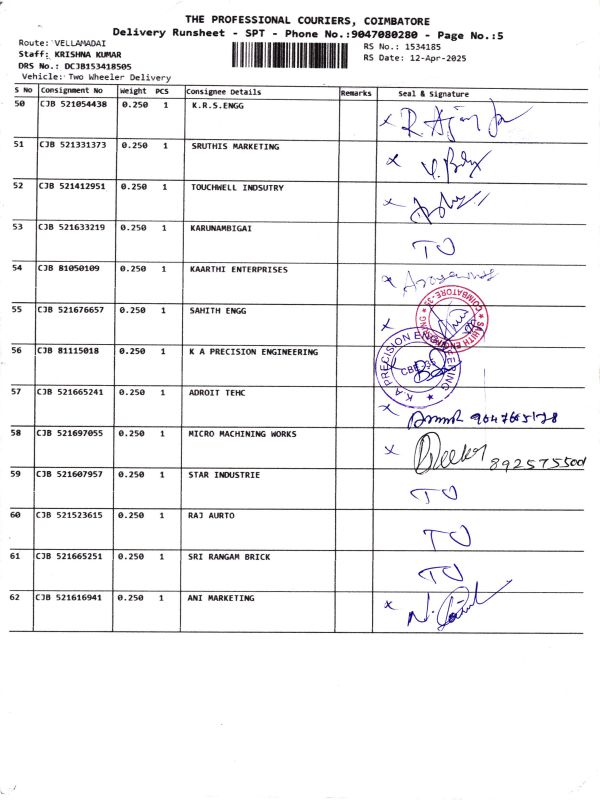 THE PROFESSIONAL COURIERS, COIMBATORE
Delivery Runsheet - SPT - Phone No.:9047080280 - Page No.:5
Route: VELLAMADAI
RS No.: 1534185
Staff: KRISHNA KUMAR
RS Date: 12-Apr-2025
DRS No.: DCJB153418505
Vehicle: Two Wheeler Delivery
S No Consignment No Weight PCS Consignee Details Remarks Seal & Signature
50 CJB 521054438 0.250 1 K.R.S.ENGG
51 CJB 521331373 0.250 1 SRUTHIS MARKETING
52 CJB 521412951 0.250 1 TOUCHWELL INDSUTRY
53 CJB 521633219 0.250 1 KARUNAMBIGAI TO
54 CJB 81050109 0.250 1 KAARTHI ENTERPRISES
55 CJB 521676657 0.250 1 SAHITH ENGG
★ SAHITH ENGG ★ COIMBATORE-35
56 CJB 81115018 0.250 1 K A PRECISION ENGINEERING
K.A.PRECISION ENGINEERING ★ CBE-35
57 CJB 521665241 0.250 1 ADROIT TEHC
58 CJB 521697055 0.250 1 MICRO MACHINING WORKS 8925755001
59 CJB 521607957 0.250 1 STAR INDUSTRIE TO
60 CJB 521523615 0.250 1 RAJ AURTO TO
61 CJB 521665251 0.250 1 SRI RANGAM BRICK TO
62 CJB 521616941 0.250 1 ANI MARKETING